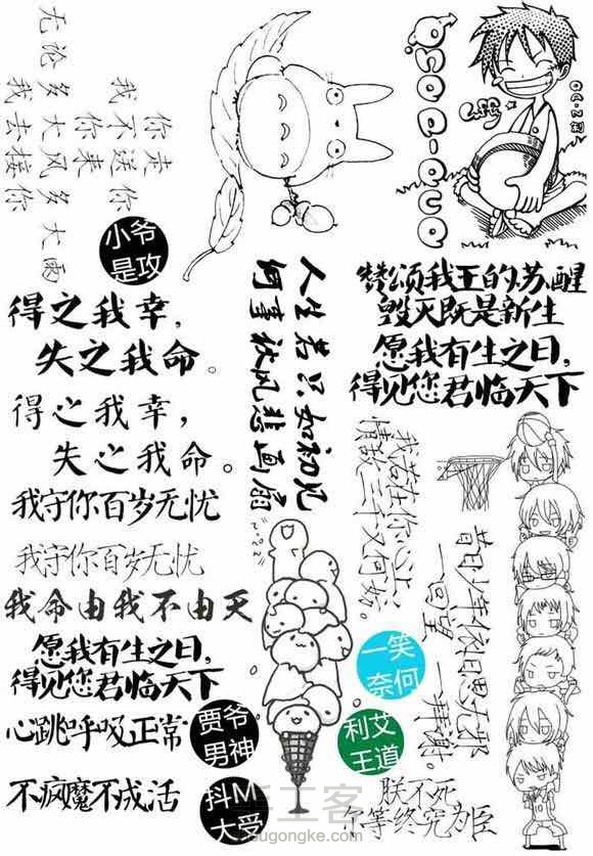 你走
我不送你
你来
无论多大风多大雨
我去接你
小爷
是攻
得之我幸，
失之我命。
得之我幸，
失之我命。
我守你百岁无忧
我守你百岁无忧
我命由我不由天
愿我有生之日，
得见您君临天下
心跳呼吸正常
不疯魔不成活
贾爷
男神
抖M
大受
人生若只如初见
何事秋风悲画扇
赞颂我王的苏醒
毁灭既是新生
愿我有生之日，
得见您君临天下
我若在你心上
情敌三千又何妨。
昔日少年依旧思无邪
一回望 一拜谢。
一笑
奈何
利艾
王道
朕不死
尔等终究为臣
手工客